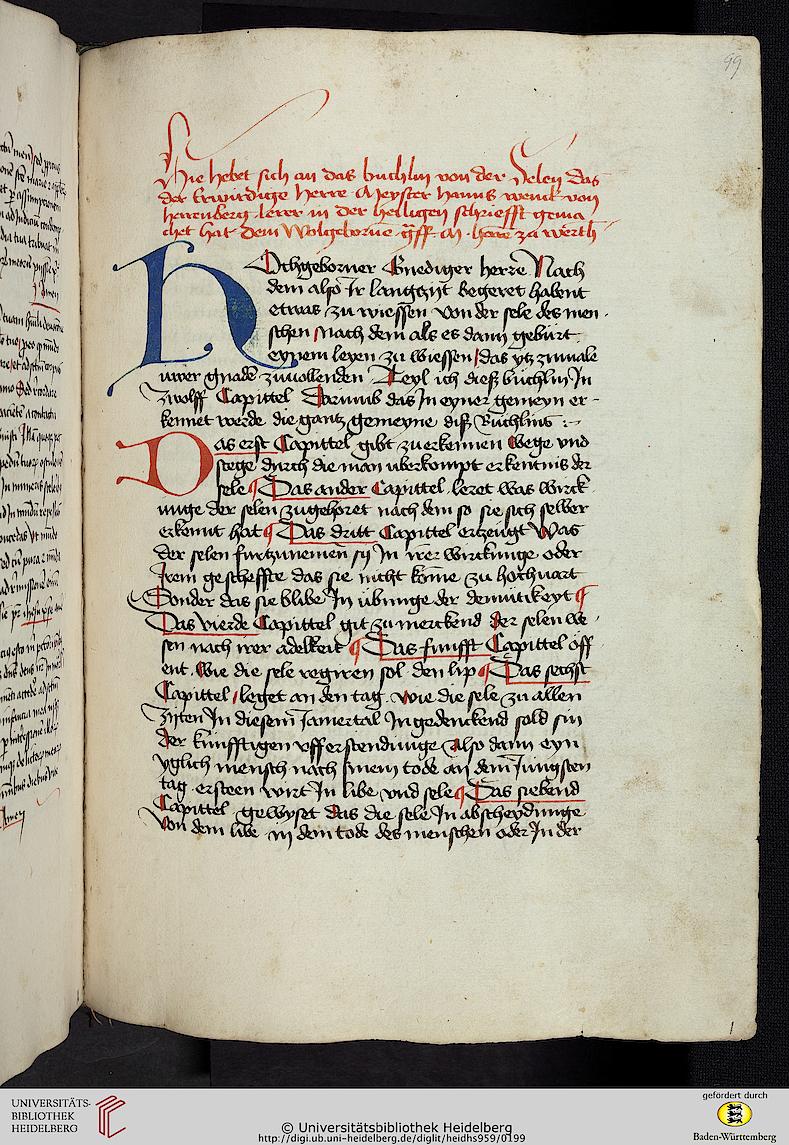 99
Hie hebet sich an das buchlin von der Selen das
der Erwirdige herre Meyster hanns wenck von
herrenberg lerer in der heiligen schriefft gema
chet hat dem Wolgebornē graff M. herrē zu werth
HOchgeborner Gnediger herrē Nach
dem also Ir langzijt begeret habent
etwas zu wiessen von der sele des men-
schen nach dem als es dann geburt
eynem leyen zu wiessen das ytz zumale
uwer gnadē zuuollenden Teyl ich dieß buchlin In
zwolff Capittel Darumb das In eyner gemeyn er-
kennet werde die gantz gemeyne diß Buchlins :-
Das erst Capittel gibt zuerkennen wege vnd
stege durch die man uberkompt erkentnis der
sele ¶ Das ander Capittel leret was wirck
unge der selen zugehoret nach dem so sie sich selber
erkennt hat ¶ Das dritt Capittel ertzeugt Was
der selen furtzunemen sy In irer wirckunge oder
Irem gescheffte das sie nicht kōme zu hochuart
Sonder das sie blibe In ubunge der demutikeyt ¶
Das vierde Capittel git zu merckend der selen we-
sen nach irer adelkeit ¶ Das funfft Capittel off
ent. Wie die sele regiren sol den lip ¶ Das sechst
Capittel leget an den tag. wie die sele zu allen
Zijten In diesem Jamertal Ingedenckend sold sin
der kunfftigen vfferstendunge Also dann eyn
yglich mensch nach sinem tode an dem Jungsten
tag ersteen wirt In libe vnd sele ¶ Das siebend
Capittel gewyset das die sele In abscheydunge
von dem libe in dem tode des menschen oder In der
UNIVERSITÄTS-
BIBLIOTHEK
HEIDELBERG
© Universitätsbibliothek Heidelberg
http://digi.ub.uni-heidelberg.de/diglit/heidhs959/0199
gefördert durch
Baden-Württemberg